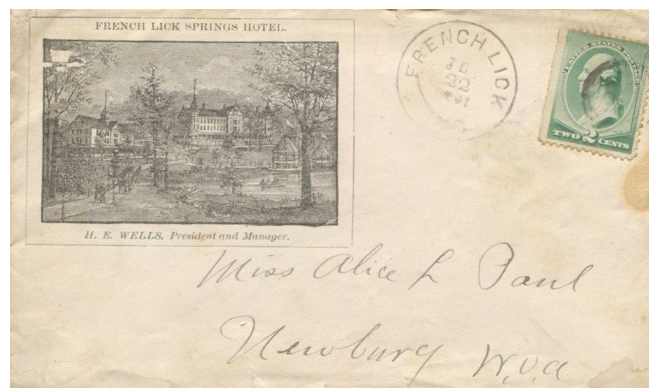 FRENCH LICK SPRINGS HOTEL.
H. E. WELLS, President and Manager.
FRENCH LICK
UNITED STATES POSTAGE
TWO 2 CENTS
Miss Alice L Paul
Newburg W.Va